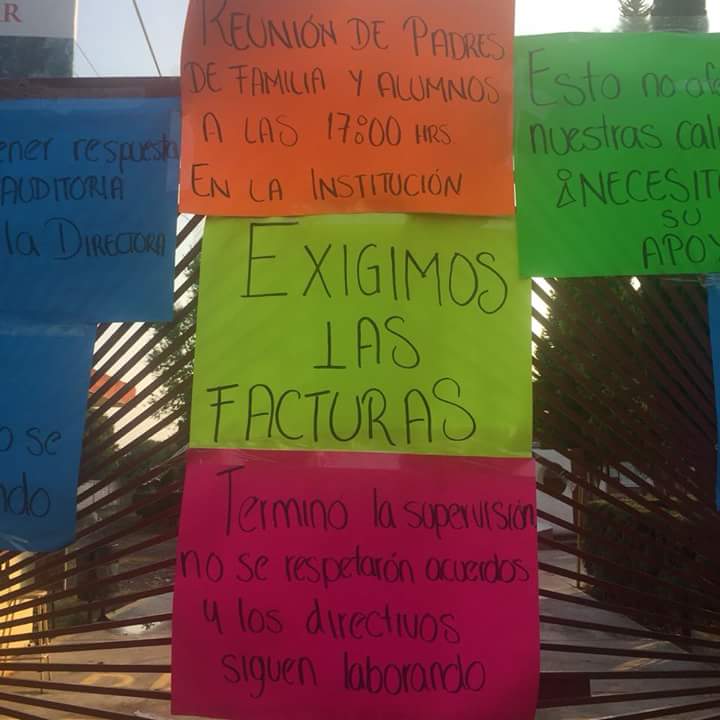 R
REUNIÓN DE PADRES
DE FAMILIA Y ALUMNOS
A LAS 17:00 HRS.
EN LA INSTITUCIÓN
ener respuesta
AUDITORIA
la DIRECTORA
Esto no afe
nuestras cali
¡NECESIT
SU
APOY
EXIGIMOS
LAS
FACTURAS
o se
ndo
Terminó la supervisión
no se respetarón acuerdos
y los directivos
siguen laborando